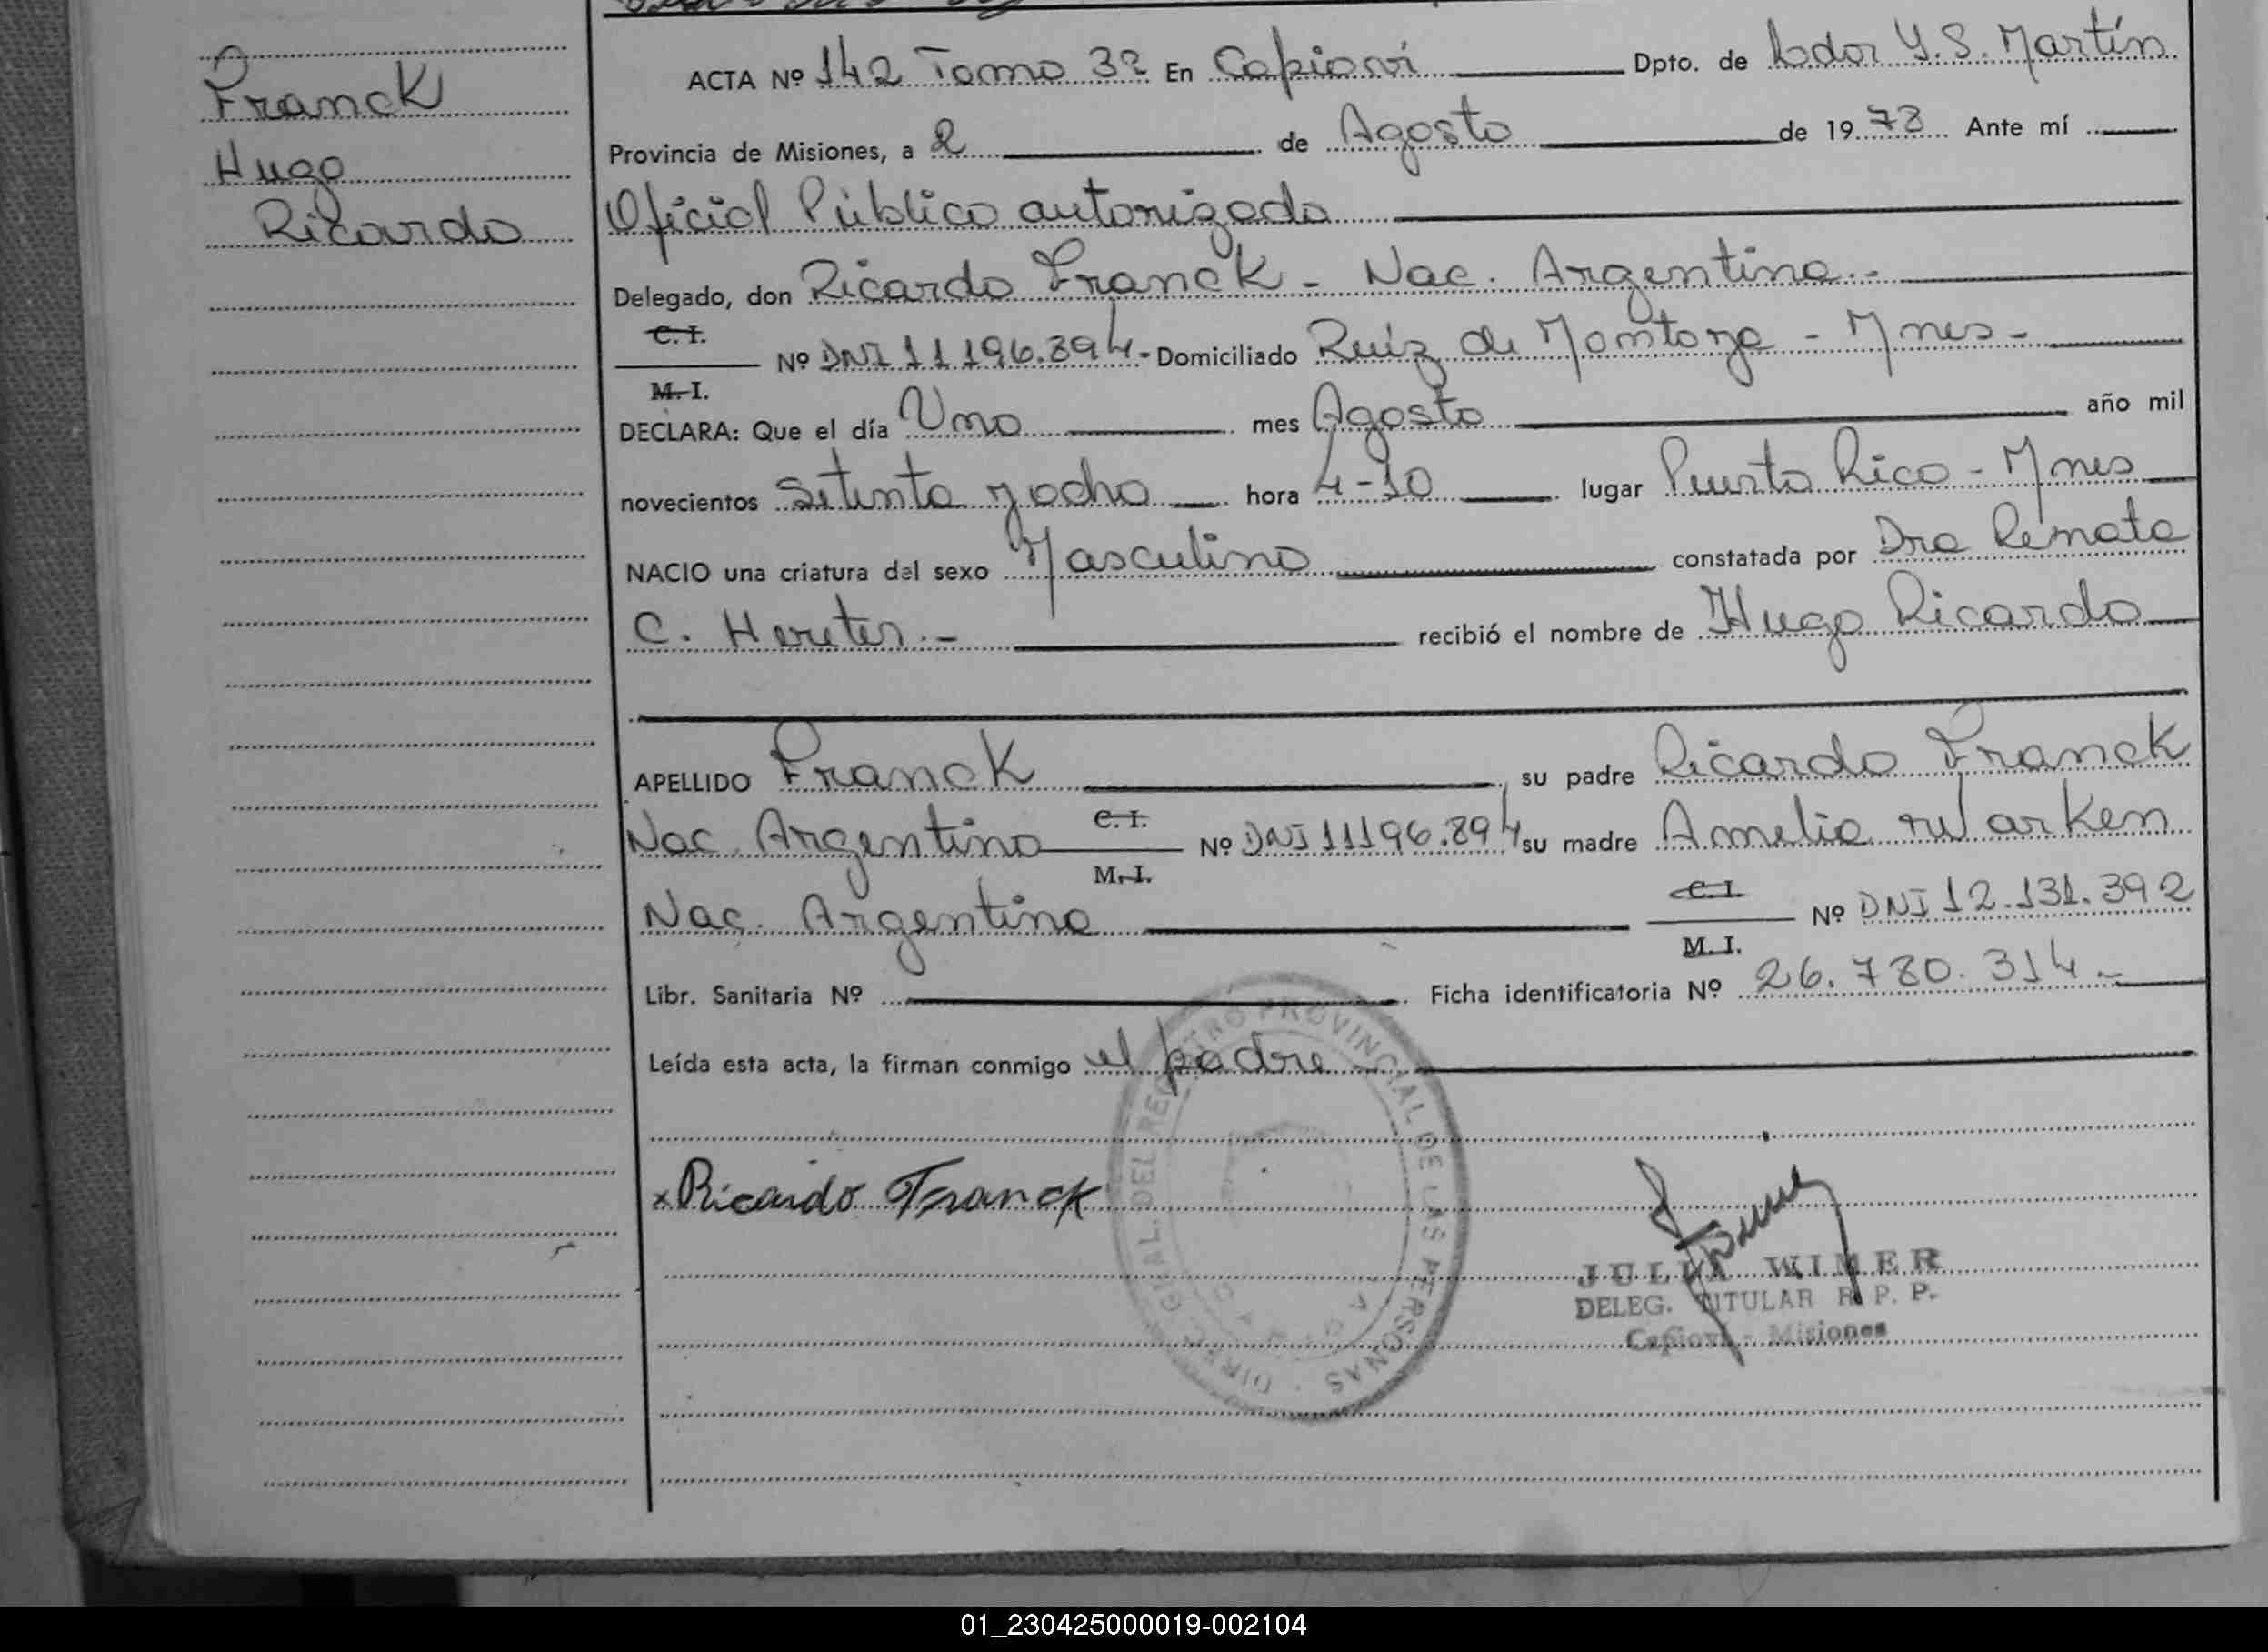 Franck
Hugo
Ricardo
ACTA Nº 142 Tomo 3º En Capioví Dpto. de Ldor G.S. Martín
Provincia de Misiones, a 2 de Agosto de 1978 Ante mí
Oficial Público autorizado
Delegado, don Ricardo Franck - Nac. Argentina.-
C. I.
M. I.
Nº DNI 11196.894.- Domiciliado Ruíz de Montoya - Mnes -
DECLARA: Que el día Uno mes Agosto año mil
novecientos Setenta y ocho hora 4-10 lugar Puerto Rico - Mnes
NACIO una criatura del sexo Masculino constatada por Dra Renata
C. Hereter.- recibió el nombre de Hugo Ricardo
APELLIDO Franck su padre Ricardo Franck
Nac. Argentino C. I. M. I. Nº DNI 11196.894 su madre Amelia Warken
Nac. Argentina C. I. M. I. Nº DNI 12.131.392
Libr. Sanitaria Nº Ficha identificatoria Nº 26.780.314.-
Leída esta acta, la firman conmigo el padre
x Ricardo Franck
DIREC. GRAL. DEL REGISTRO PROVINCIAL DE LAS PERSONAS
JULIA WIMER
DELEG. TITULAR R. P. P.
Capioví - Misiones
01_230425000019-002104